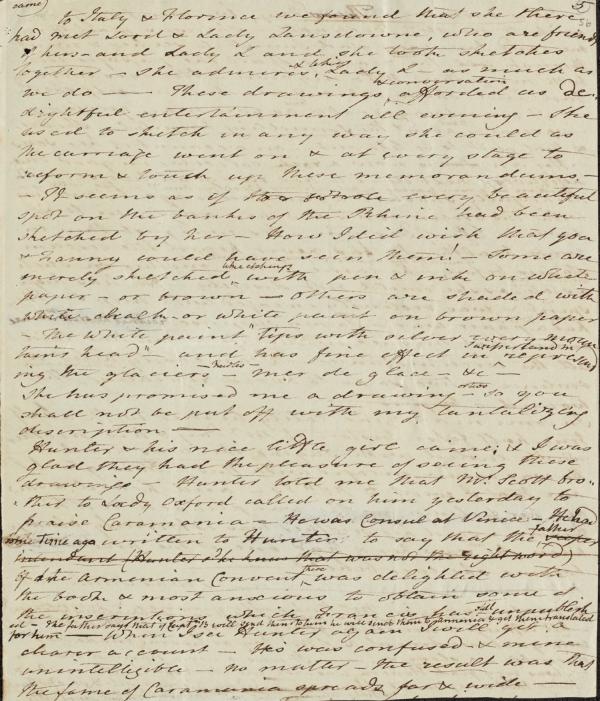 came)
5
50
to Italy & Florence we found that she there
had met Lord & Lady Lansdowne, who are friends
of hers and Lady L and she took sketches
together – She admires & likes Lady L as much as
we do — These drawings & conversation afforded us de-
lightful entertainment all evening – She
used to sketch in any way she could as
the carriage went on & at every stage to
reform & touch up these memorandums –
– It seems as if every beautiful
spot on the banks of the Rhine had been
sketched by her – How I did wish that you
& Fanny could have seen them! – Some are
merely sketched with pen & ink on white
paper – or brown – others are shaded with
white chalk or white paint on brown paper
– The white paint "tips with silver every moun
tains head" and has fine effect in representing
Switzerland in
ing the glaciers – mer de glace – &c –
She has promised me a drawing – so you
shall not be put off with my tantalizing
discription —
Hunter & his nice little girl came; & I was
glad they had the pleasure of seeing these
drawings – Hunter told me that Mr. Scott bro-
ther to Lady Oxford called on him yesterday to
praise Caramania – He was Consul at Venice – He had
some time ago written to Hunter to say that the father
intendant (Hunter sd he knew that was not the right word)
of the Armenian Convent there was delighted with
the book & most anxious to obtain some of
the inscriptions which Francis has still unpublish
ed – The father says that if Captn B will send them to him he will send them to Armenia to get them translated
for him – When I see Hunter again I will get a
clearer account – His was confused & mine
unintelligible – no matter – the result was that
the fame of Caramania spreads far & wide —